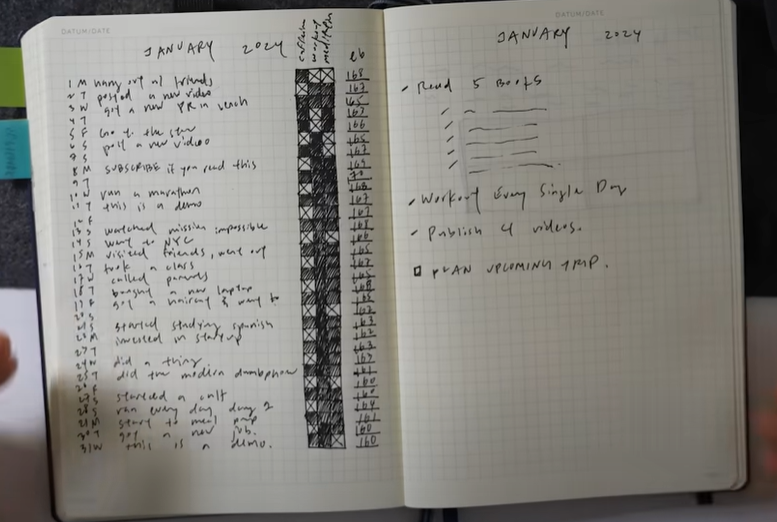 DATUM/DATE
JANUARY 2024
caffeine
workout
meditation
lb
1 M hang out w/ friends
2 T posted a new video
3 W got a new PR in
4 T
5 F
6 S post a new video
7 S
8 M SUBSCRIBE if you read this
9 T
10 W ran a marathon
11 T this is a demo
12 F
13 S watched mission impossible
14 S went to NYC
15 M visited friends, went out
16 T took a class
17 W called parents
18 T bought a new laptop
19 F got a haircut & went to
20 S
21 S started studying spanish
22 M invested in startup
23 T
24 W did a thing.
25 T did the modern dumbphone
26 F
27 S started a cult
28 S ran every day, day 2
29 M start to meal prep
30 T got a new job.
31 W this is a demo.
168
167
165
167
166
165
167
169
160
160
DATUM/DATE
JANUARY 2024
Read 5 Books
Workout Every Single Day
Publish 4 videos.
PLAN UPCOMING TRIP.